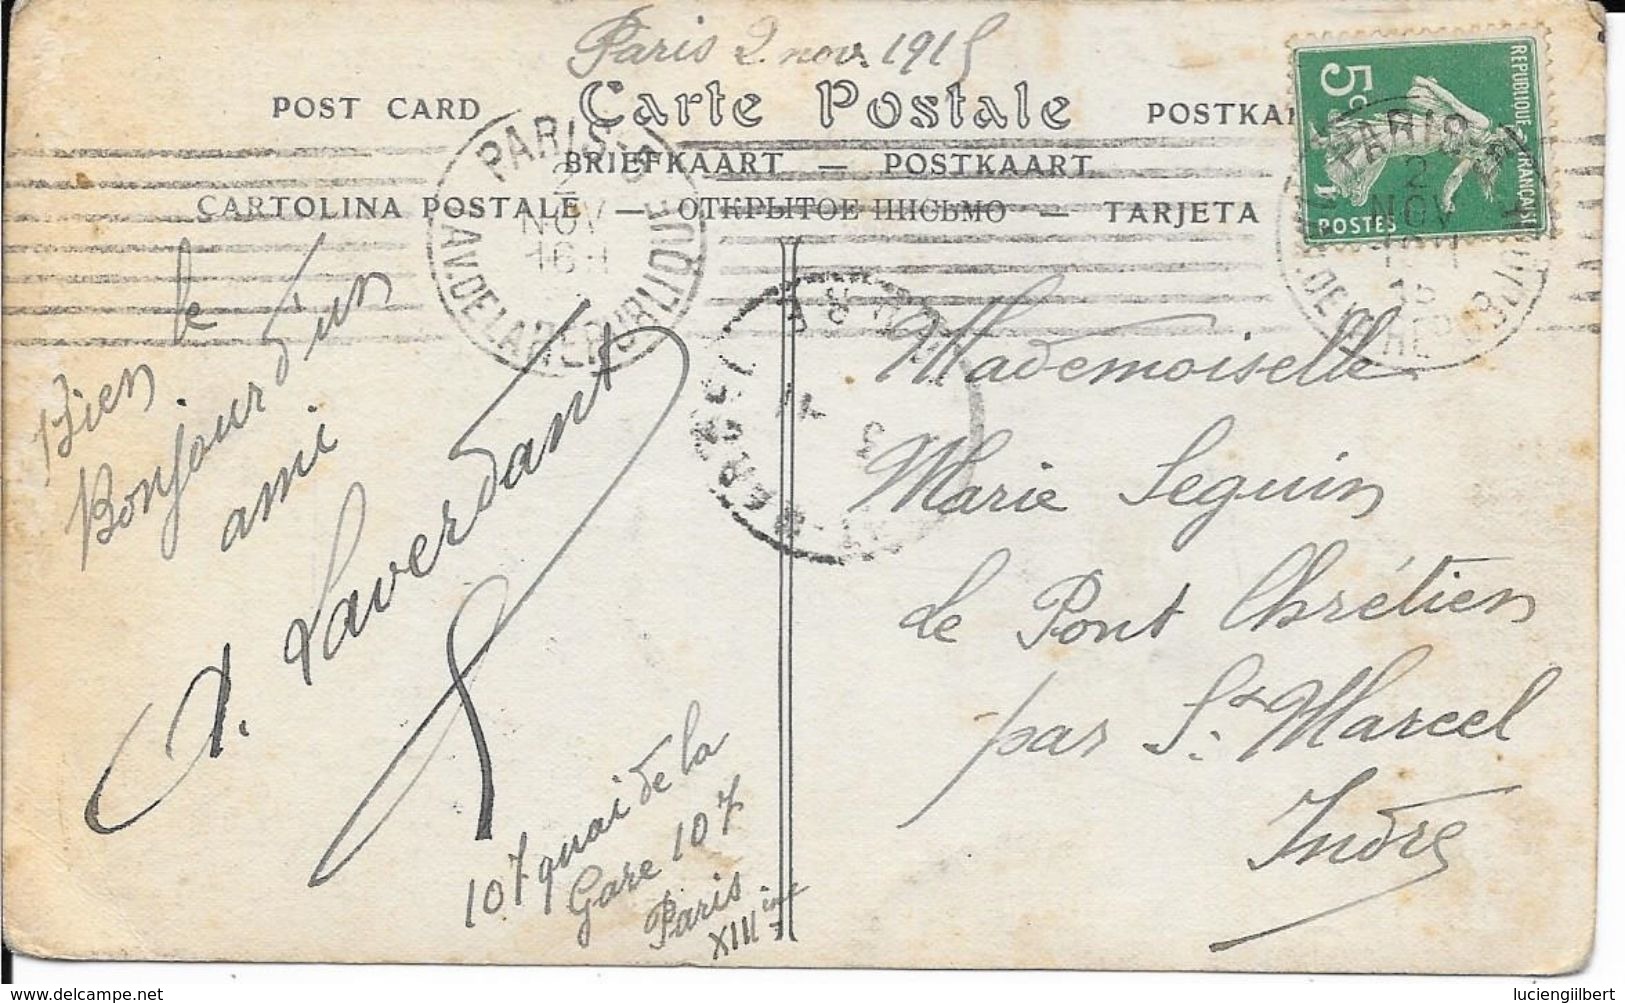 Paris 2 nov. 1915
POST CARD Carte Postale POSTKA
BRIEFKAART — POSTKAART
CARTOLINA POSTALE — ОТКРЫТОЕ ПИСЬМО — TARJETA
REPUBLIQUE FRANÇAISE
5c
POSTES
PARIS
2
NOV
16 H
AV. DE LA REPUBLIQUE
PARIS
2
NOV
Bien le
Bonjour d'un
ami
A. Laverdant
107 quai de la
Gare 107
Paris
XIIIme
Mademoiselle
Marie Seguin
Le Pont Chrétien
par St Marcel
Indre
lucienGilbert